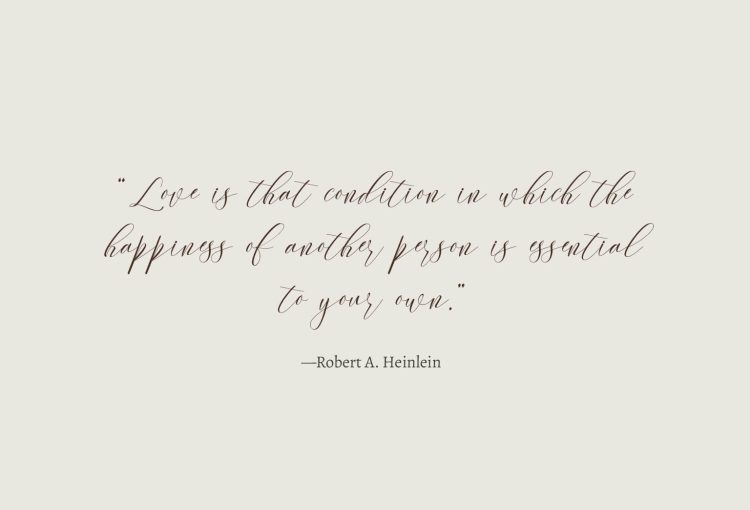 "Love is that condition in which the
happiness of another person is essential
to your own."
—Robert A. Heinlein